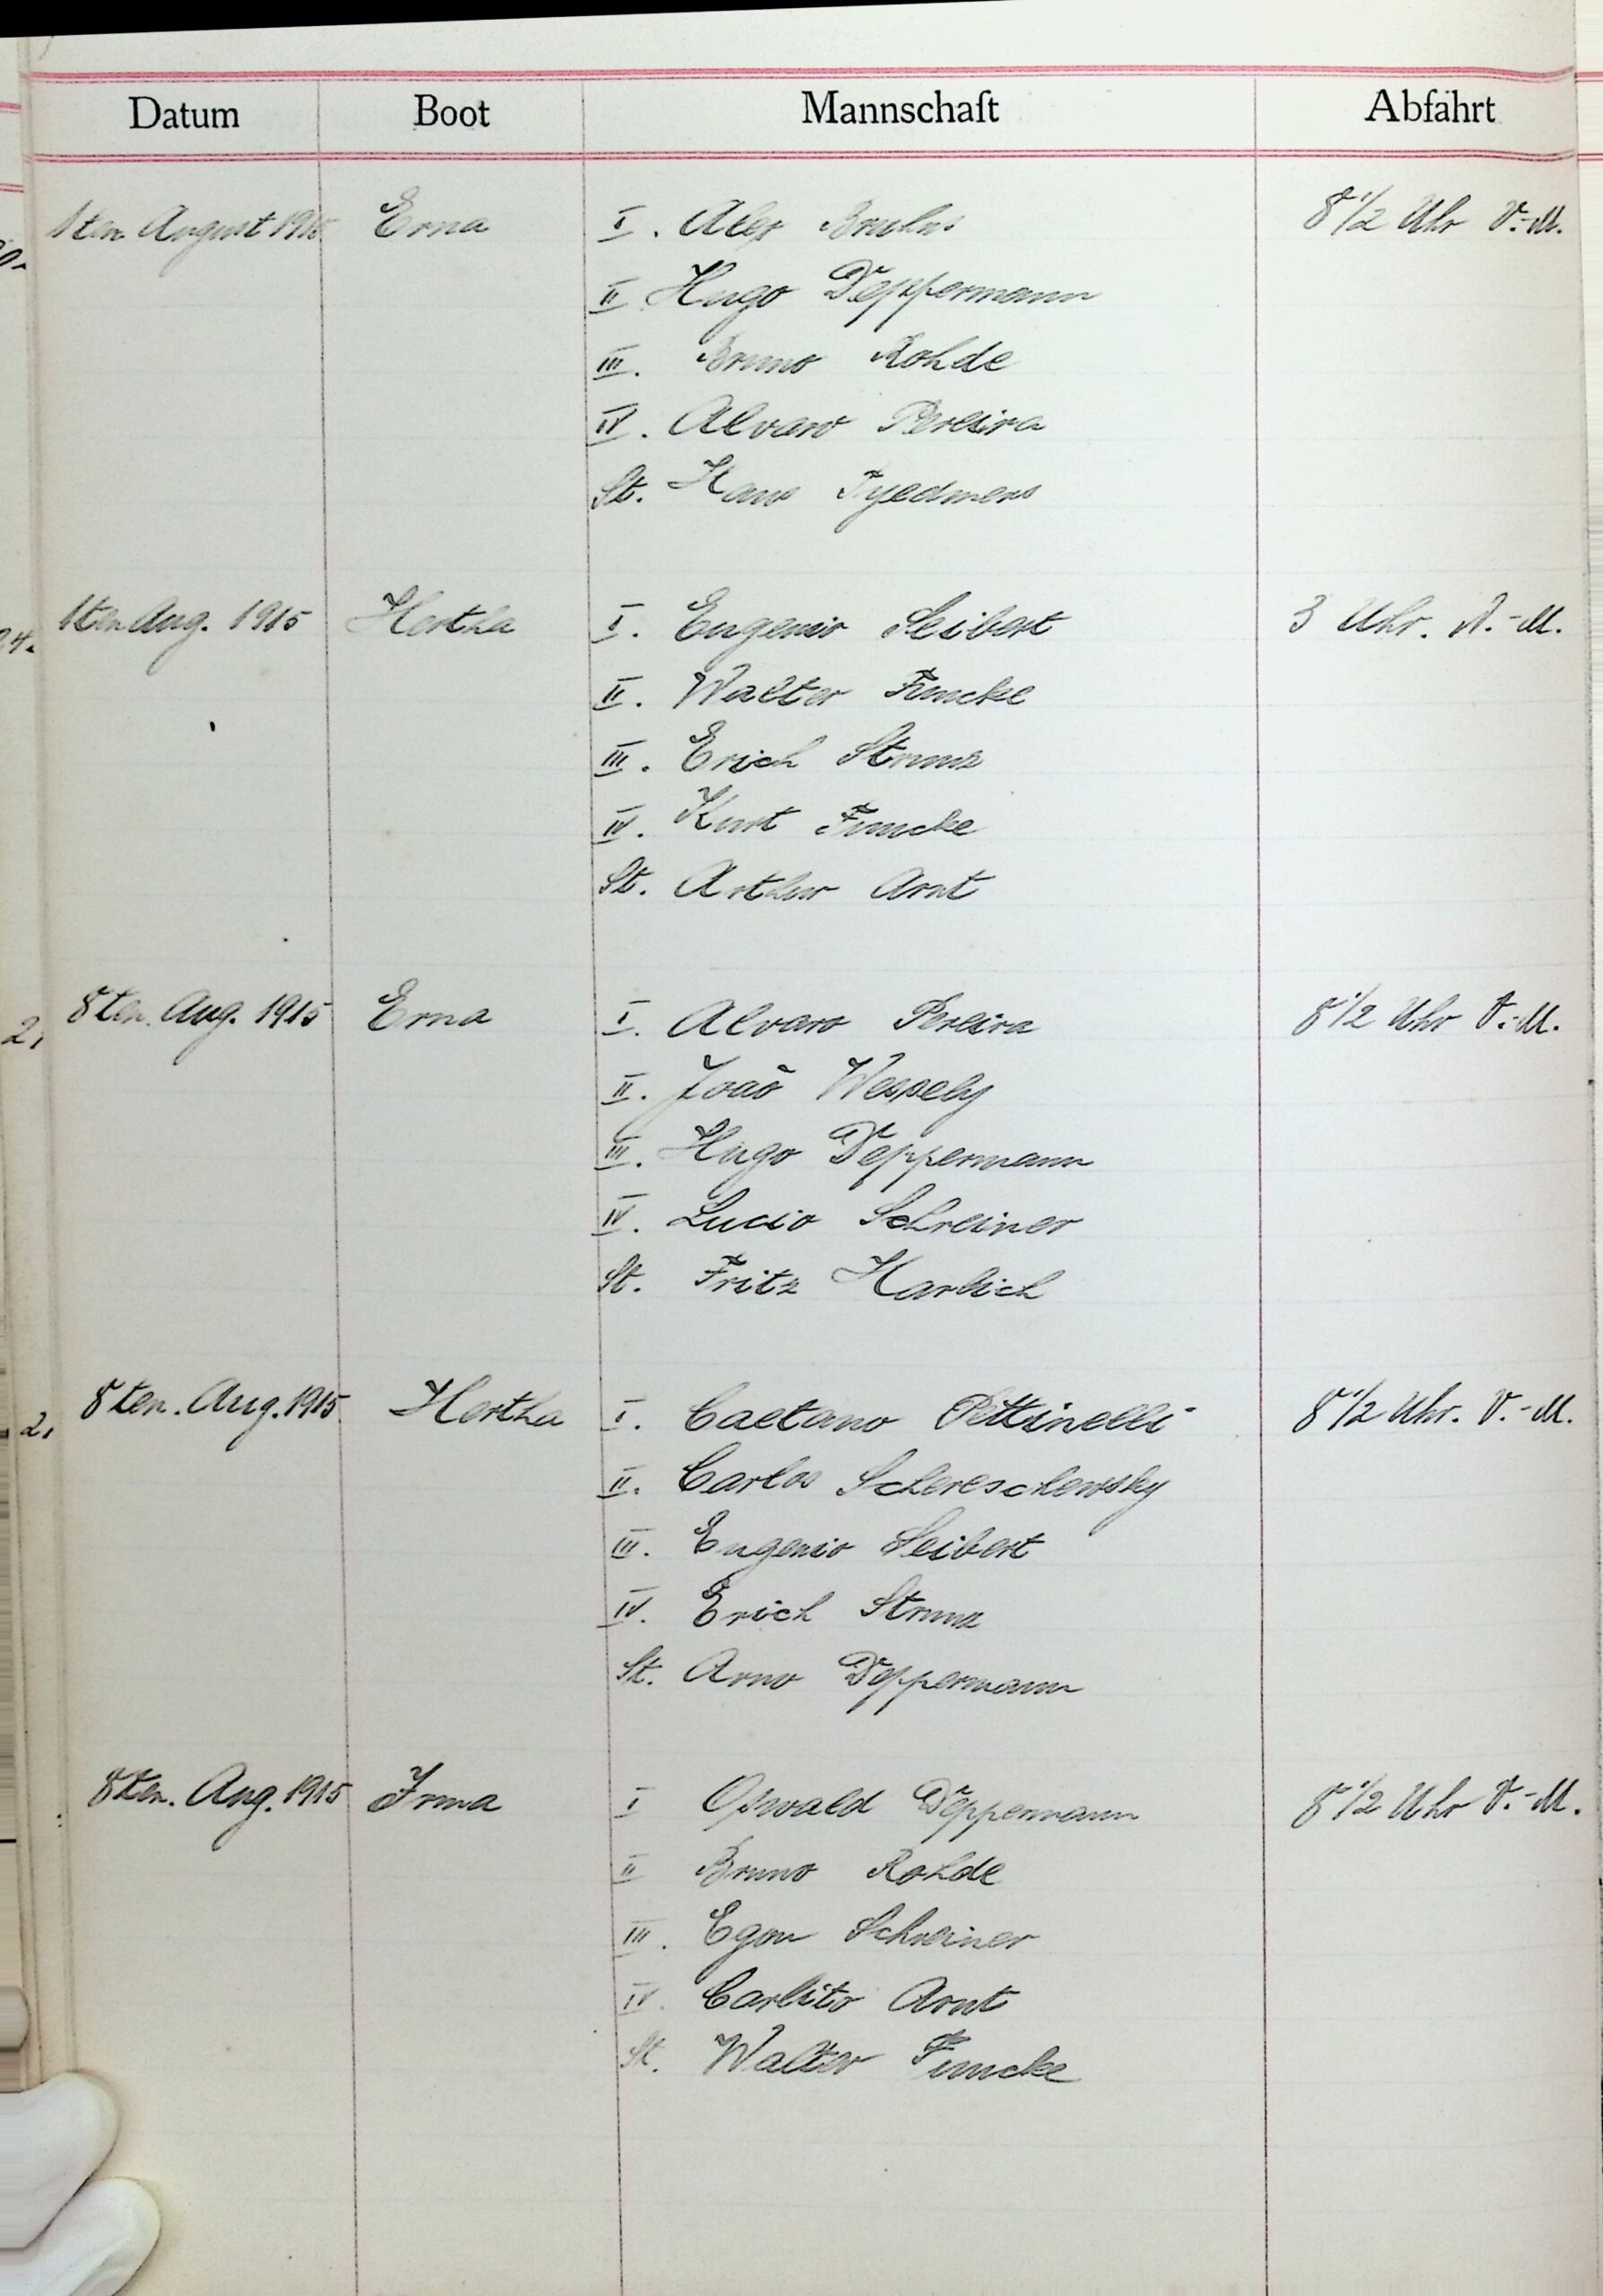 Datum Boot Mannschaft Abfahrt
1ten August 1915 Erna I. Alex Bruhns 8 1/2 Uhr V.-M.
II Hugo Deppermann
III. Bruno Rohde
IV. Alvaro Pereira
St. Hans Tyedmers
1ten Aug. 1915 Hertha I. Eugenio Seibert 3 Uhr. N.-M.
II. Walter Funcke
III. Erich Strunz
IV. Kurt Funcke
St. Arthur Arnt
8ten. Aug. 1915 Erna I. Alvaro Pereira 8 1/2 Uhr V.-M.
II. João Wessely
III. Hugo Deppermann
IV. Lucio Schreiner
St. Fritz Harbich
8ten. Aug. 1915 Hertha I. Caetano Pettinelli 8 1/2 Uhr. V.-M.
II. Carlos Schereschewsky
III. Eugenio Seibert
IV. Erich Strunz
St. Arno Deppermann
8ten. Aug. 1915 Irma I Oswald Deppermann 8 1/2 Uhr V.-M.
II Bruno Rohde
III. Egon Schreiner
IV. Carlito Arnt
St. Walter Funcke